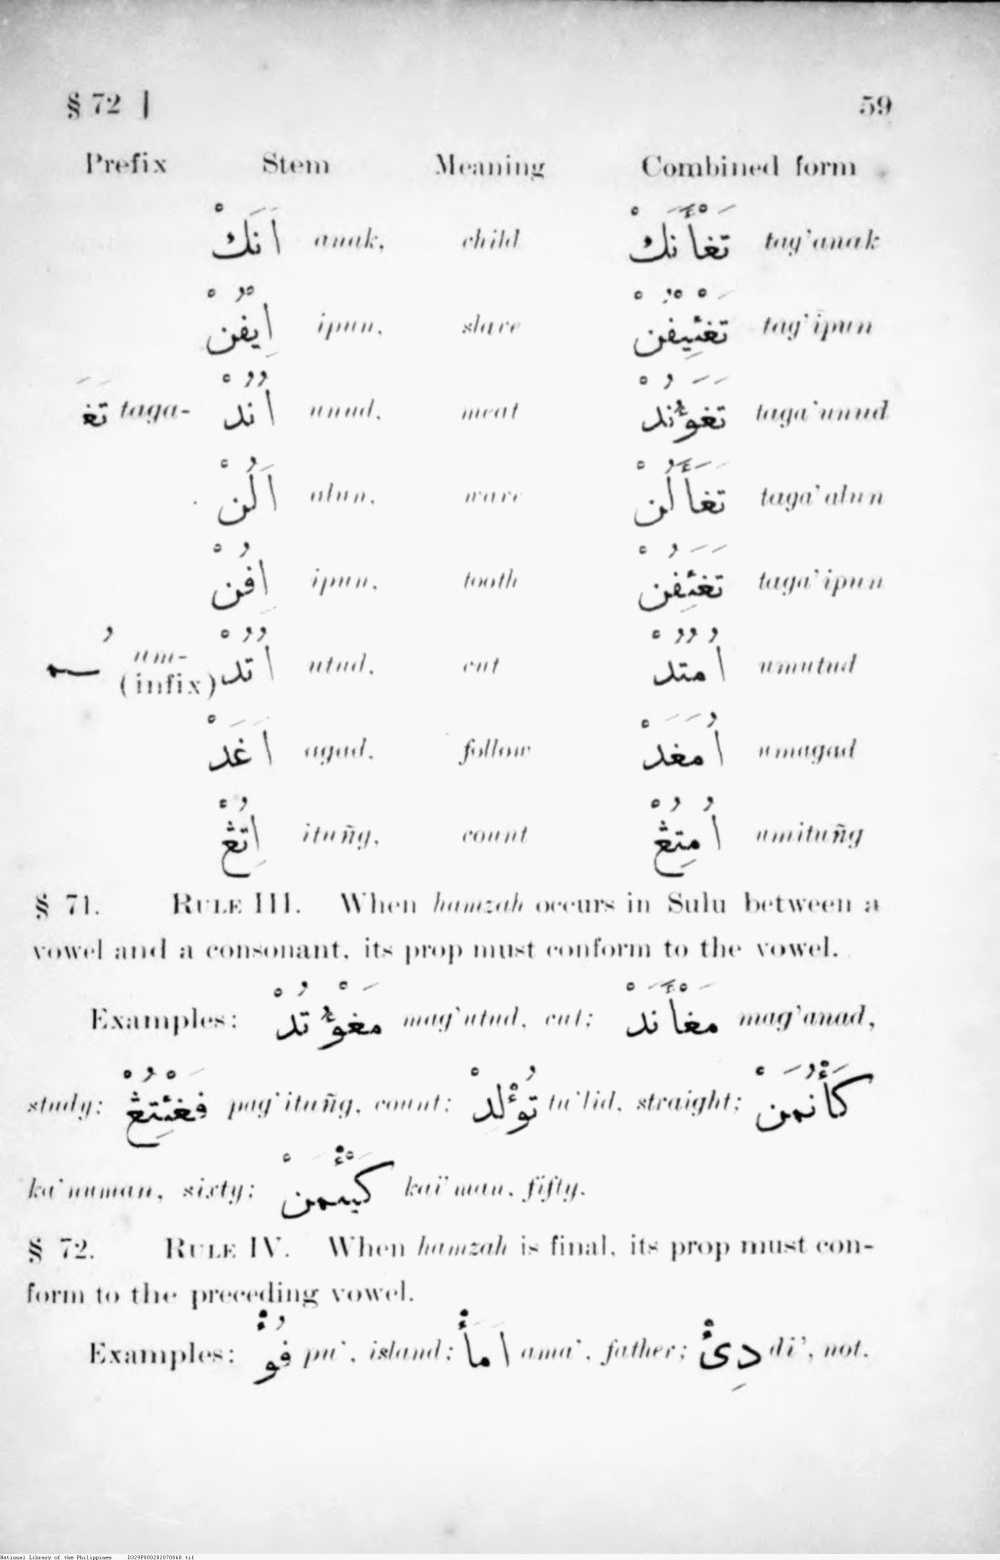 § 72 ] 59
Prefix Stem Meaning Combined form
اَنَكْ anak, child تَغْأَنَكْ tag'anak
اِيْفُنْ ipun, slave تَغْئِيْفُنْ tag'ipun
تَغَ taga- اُنُدْ unud, meat تَغَؤُنُدْ taga'unud
اَلُنْ alun, wave تَغَأَلُنْ taga'alun
اِفُنْ ipun, tooth تَغَئِفُنْ taga'ipun
ـُمـ um- (infix) اُتُدْ utud, cut اُمُتُدْ umutud
اَغَدْ agad, follow اُمَغَدْ umagad
اِتُڠْ ituñg, count اُمِتُڠْ umituñg
§ 71. RULE III. When hamzah occurs in Sulu between a
vowel and a consonant, its prop must conform to the vowel.
Examples: مَغْؤُتُدْ mag'utud, cut; مَغْأَنَدْ mag'anad,
study; فَغْئِتُڠْ pag'ituñg, count; تُؤْلِدْ tu'lid, straight; كَأْنُمَنْ
ka'numan, sixty; كَيْئْمَنْ kaï'man, fifty.
§ 72. RULE IV. When hamzah is final, its prop must con-
form to the preceding vowel.
Examples: فُؤْ pu', island; اَمَأْ ama', father; دِئْ di', not.
National Library of the Philippines